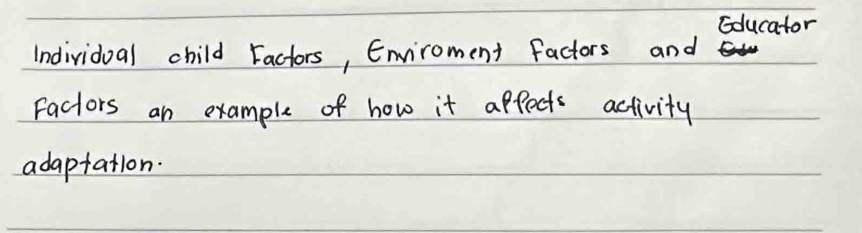 Individual child Factors, Enviroment Factors and Educator
Factors an example of how it affects activity
adaptation.